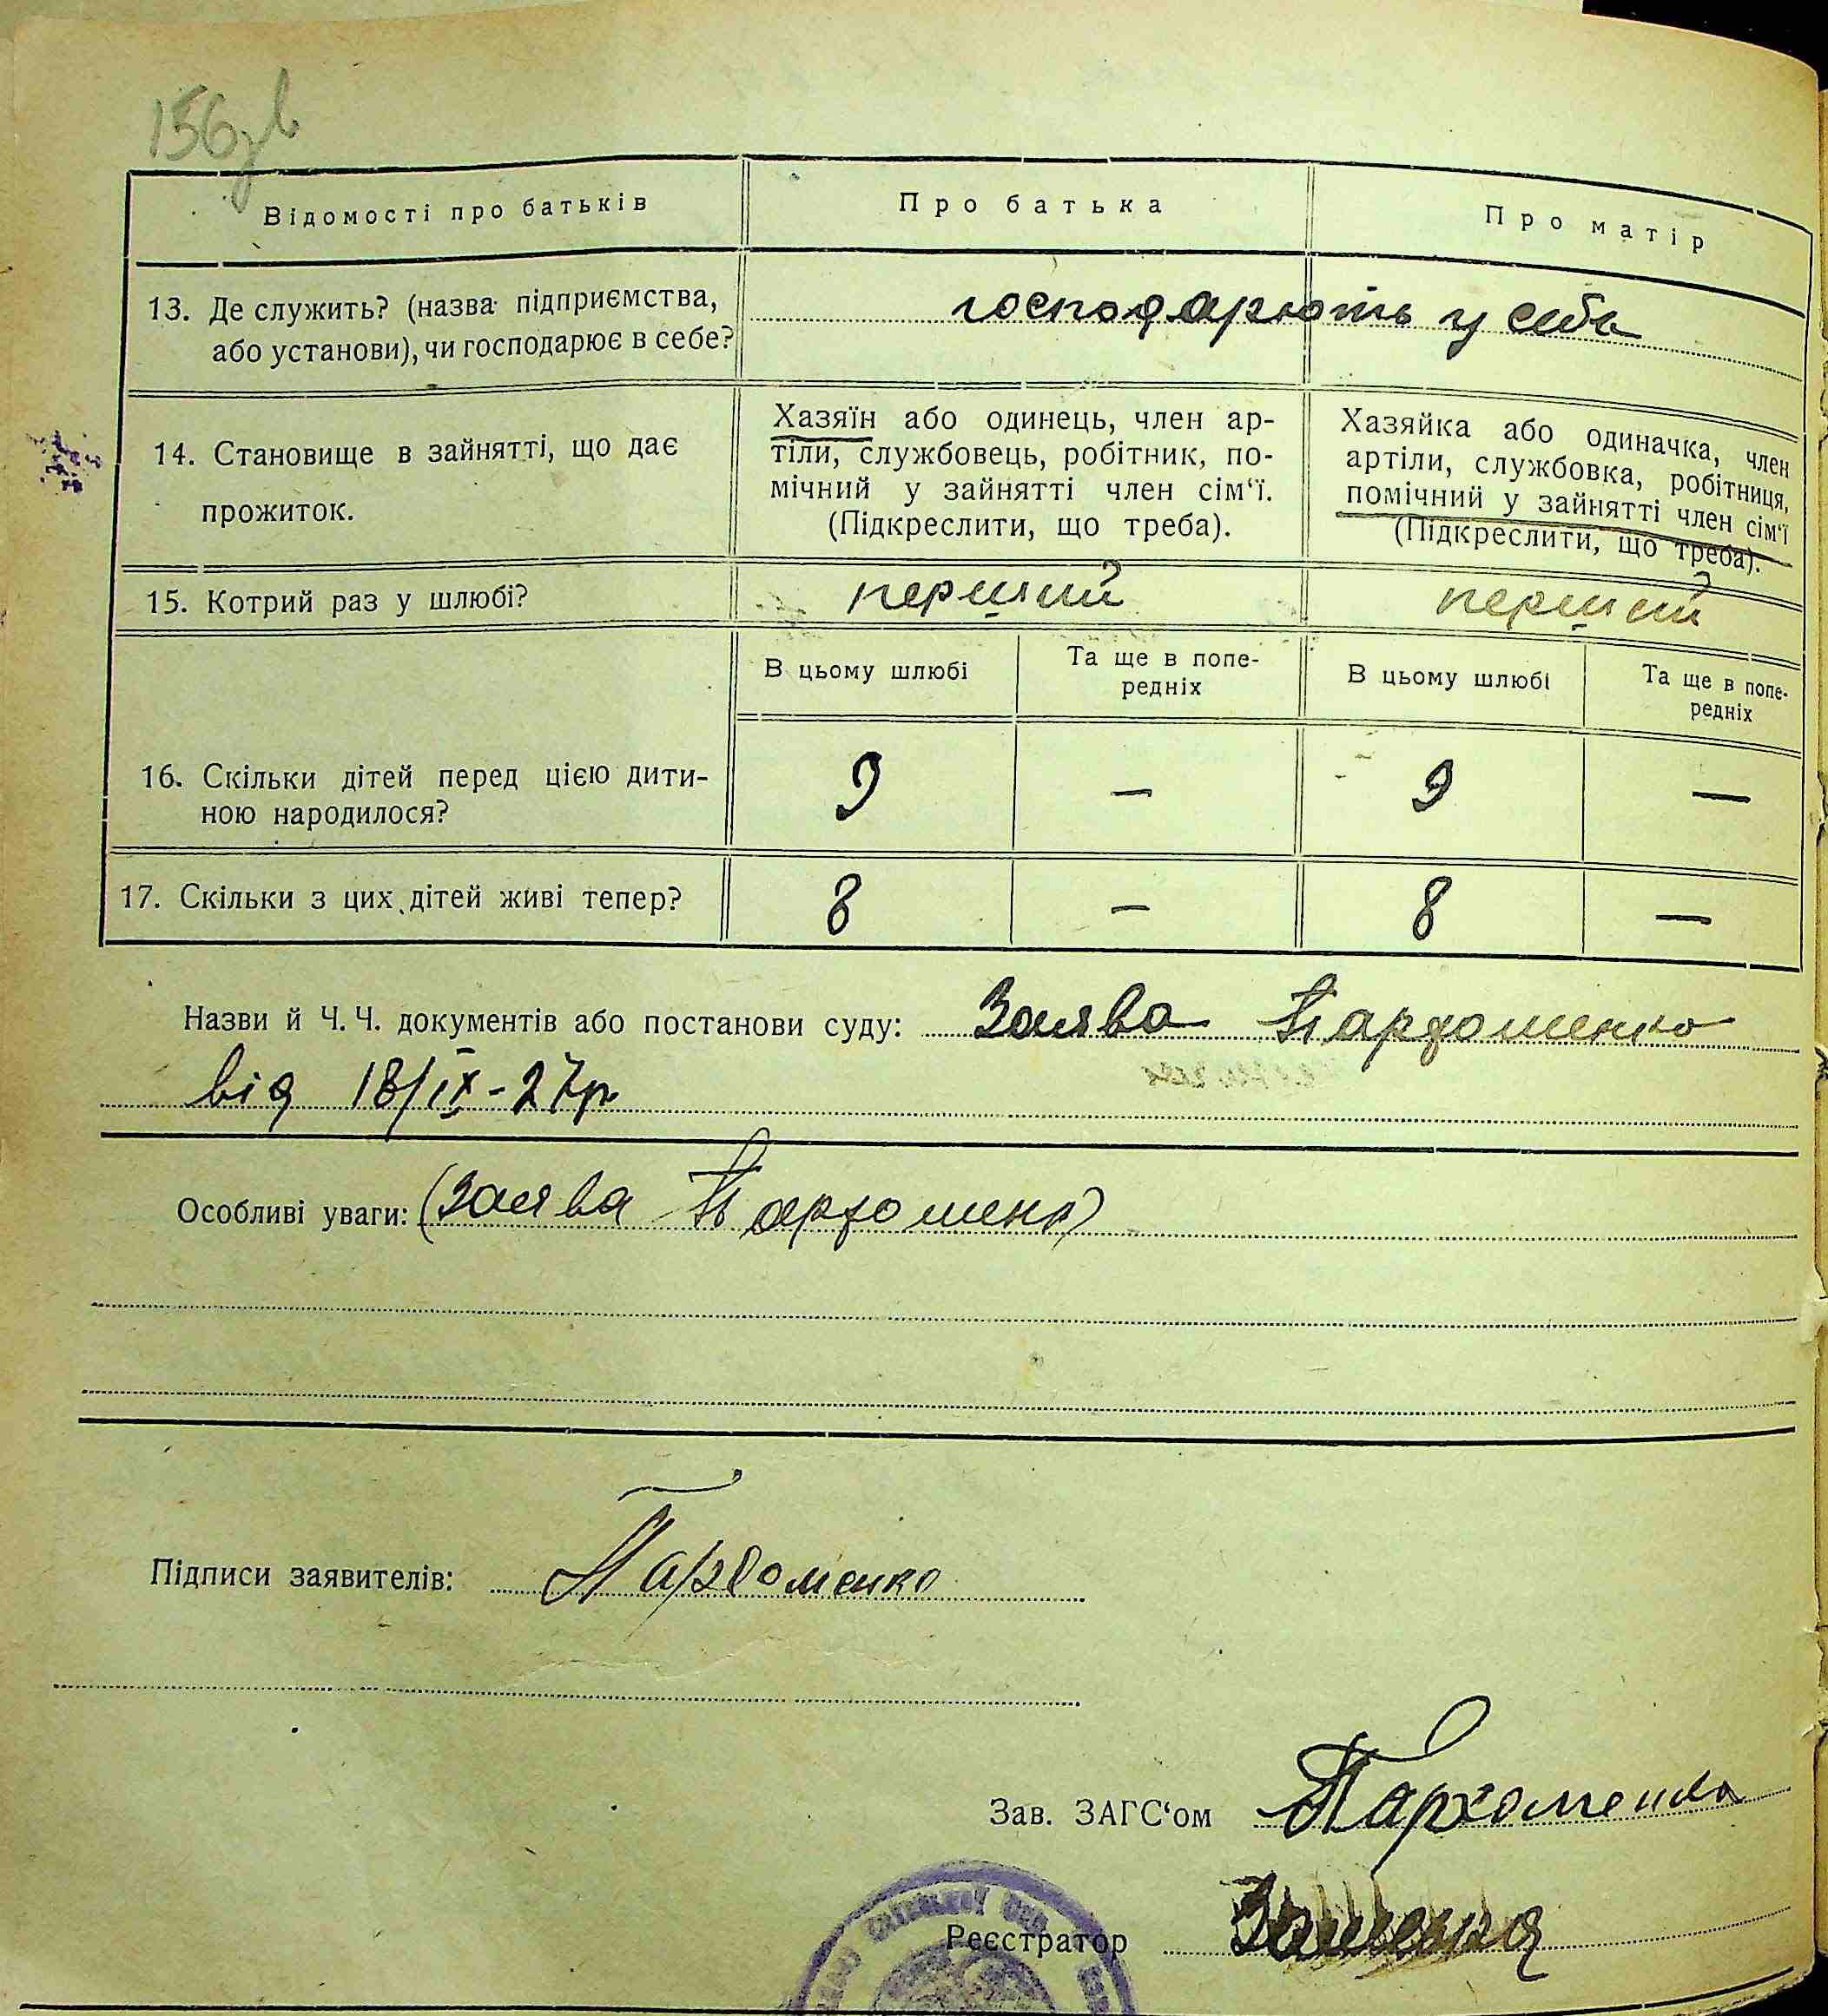 156зв
Відомості про батьків
Про батька
Про матір
13. Де служить? (назва підприємства,
або установи), чи господарює в себе?
господарюють у себе
14. Становище в зайнятті, що дає
прожиток.
Хазяїн або одинець, член ар-
тіли, службовець, робітник, по-
мічний у зайнятті член сім‘ї.
(Підкреслити, що треба).
Хазяйка або одиначка, член
артіли, службовка, робітниця,
помічний у зайнятті член сім‘ї
(Підкреслити, що треба).
15. Котрий раз у шлюбі?
перший
перший
В цьому шлюбі
Та ще в попе-
редніх
В цьому шлюбі
Та ще в попе-
редніх
16. Скільки дітей перед цією дити-
ною народилося?
9
—
9
—
17. Скільки з цих дітей живі тепер?
8
—
8
—
Назви й Ч. Ч. документів або постанови суду: Заява Пархоменко
від 18/IX-27р
Особливі уваги: (Заява Пархоменк)
Підписи заявителів: Пархоменко
Зав. ЗАГС‘ом Пархоменко
Реєстратор